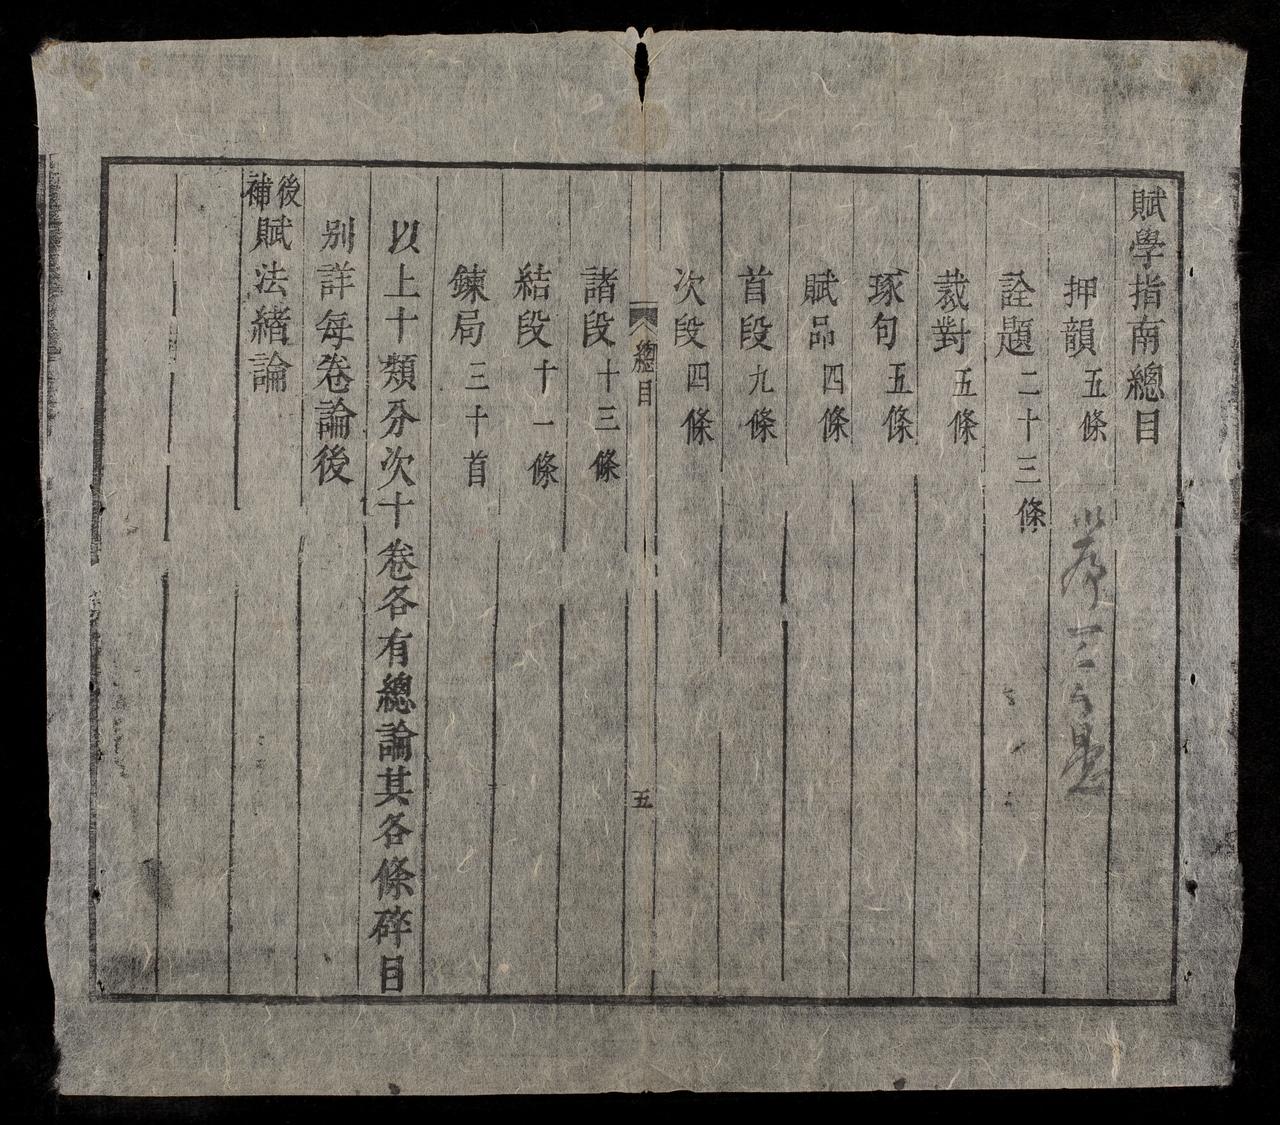 賦學指南總目
押韻五條
詮題二十三條
裁對五條
琢句五條
賦品四條
首段九條
次段四條
總目
五
諸段十三條
結段十一條
鍊局三十首
以上十類分次十卷各有總論其各條碎目
別詳每卷論後
後補賦法緒論